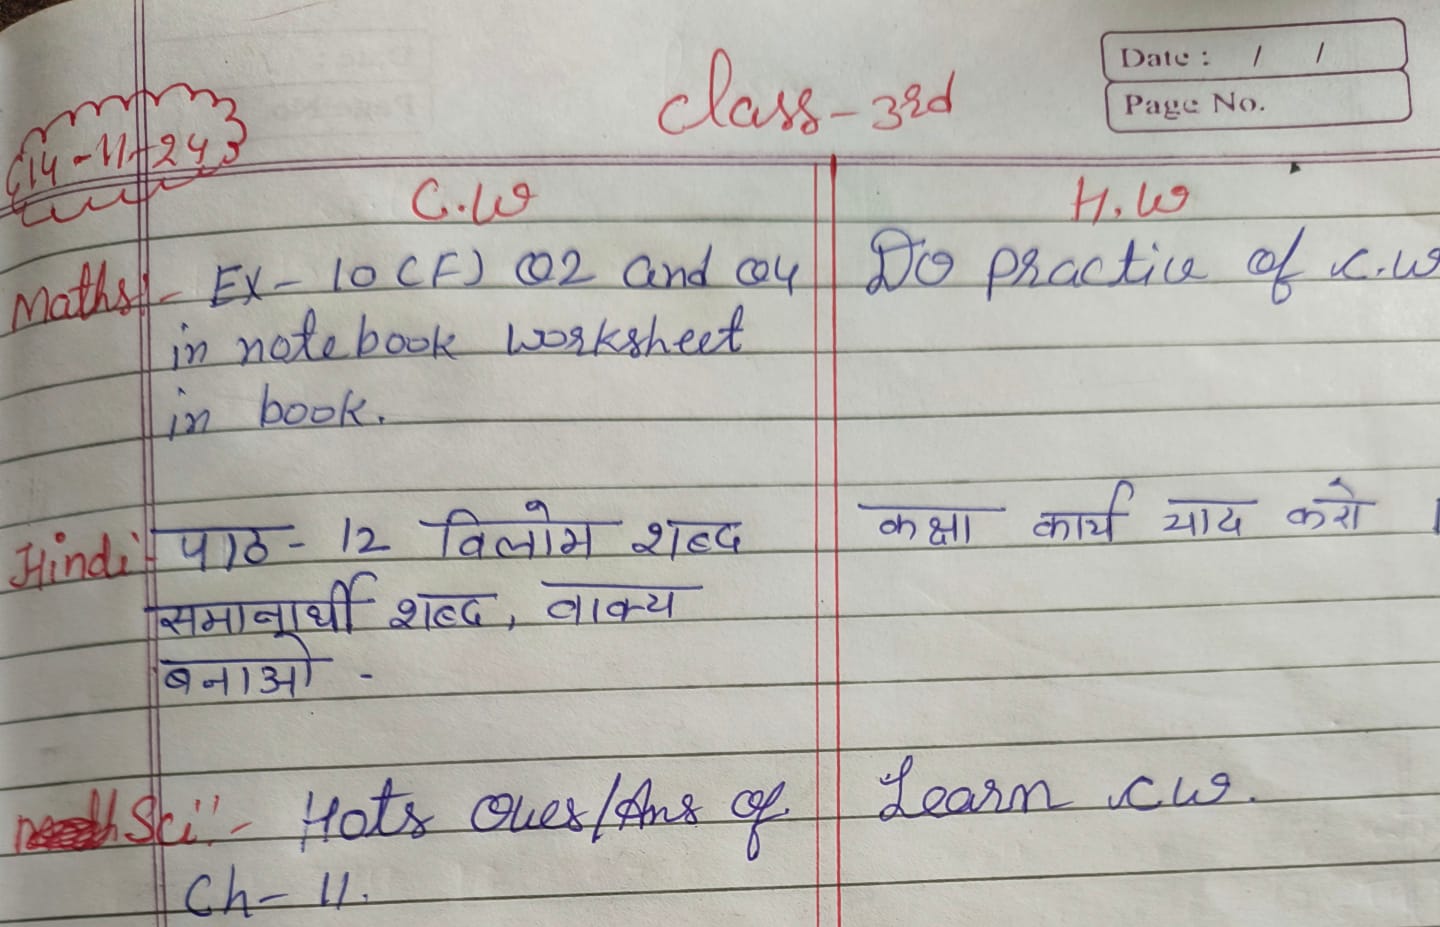 Date : / /
Page No.
Class-3rd
14-11-24
C.W
H.W
Maths:- Ex-10(F) Q2 and Q4
in notebook worksheet
in book.
Do practice of C.W
Hindi:- पाठ-12 विलोम शब्द
समानार्थी शब्द, वाक्य
बनाओ -
कक्षा कार्य याद करो ।
Sci:- Hots Ques/Ans of
Ch-11.
Learn cw.